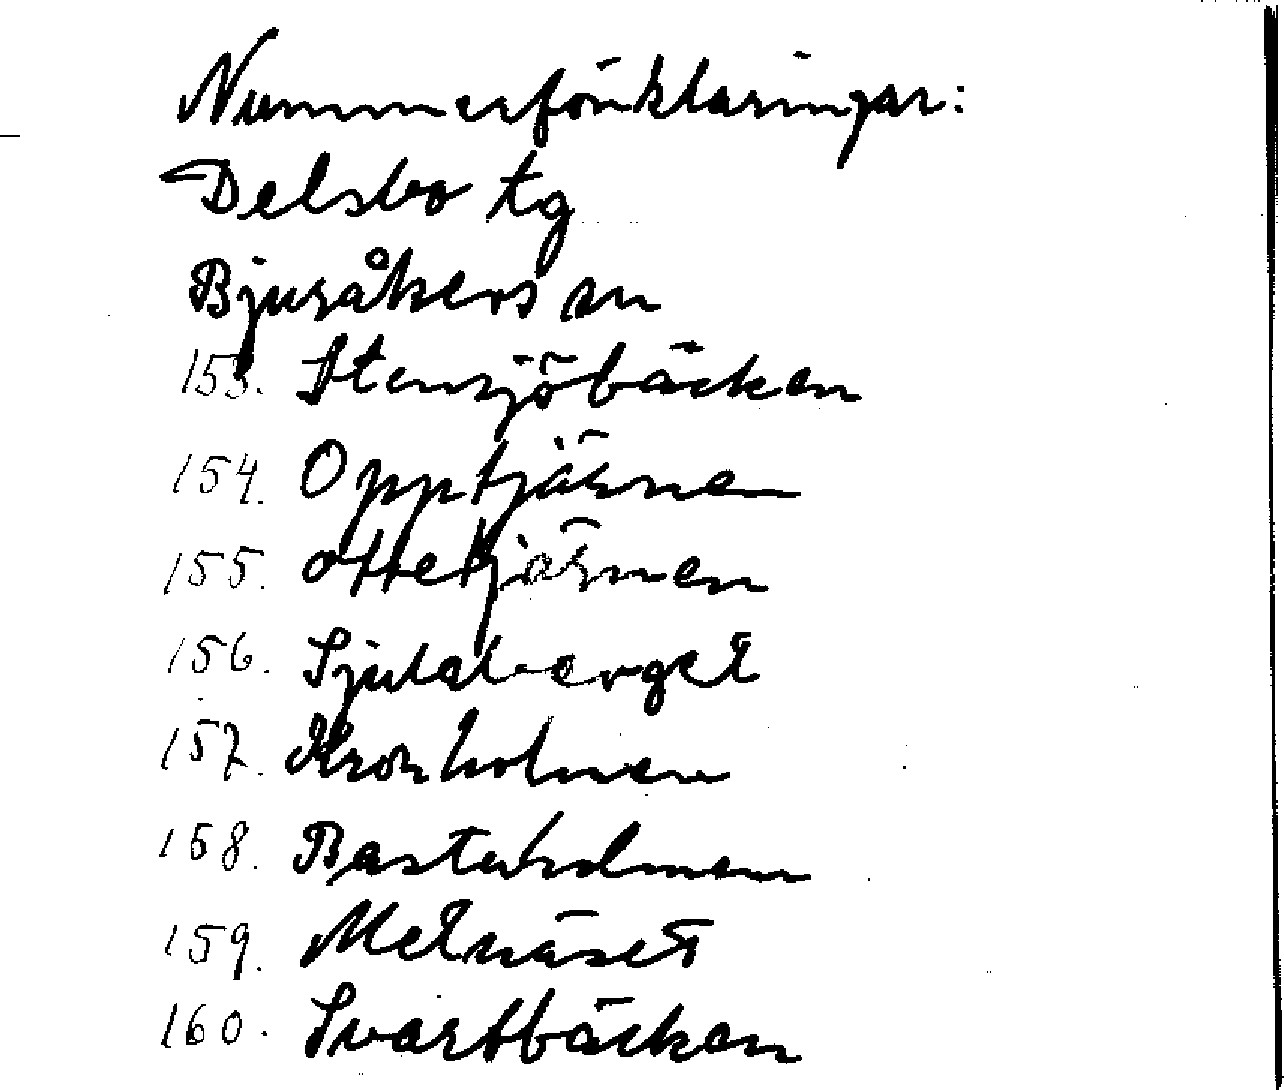 Nummerförklaringar:
Delsbo tg
Bjuråkers sn
153. Stensjöbäcken
154. Opptjärnen
155. Ottetjärnen
156. Sjulsberget
157. Kronholmen
158. Bastuholmen
159. Metnäset
160. Svartbäcken